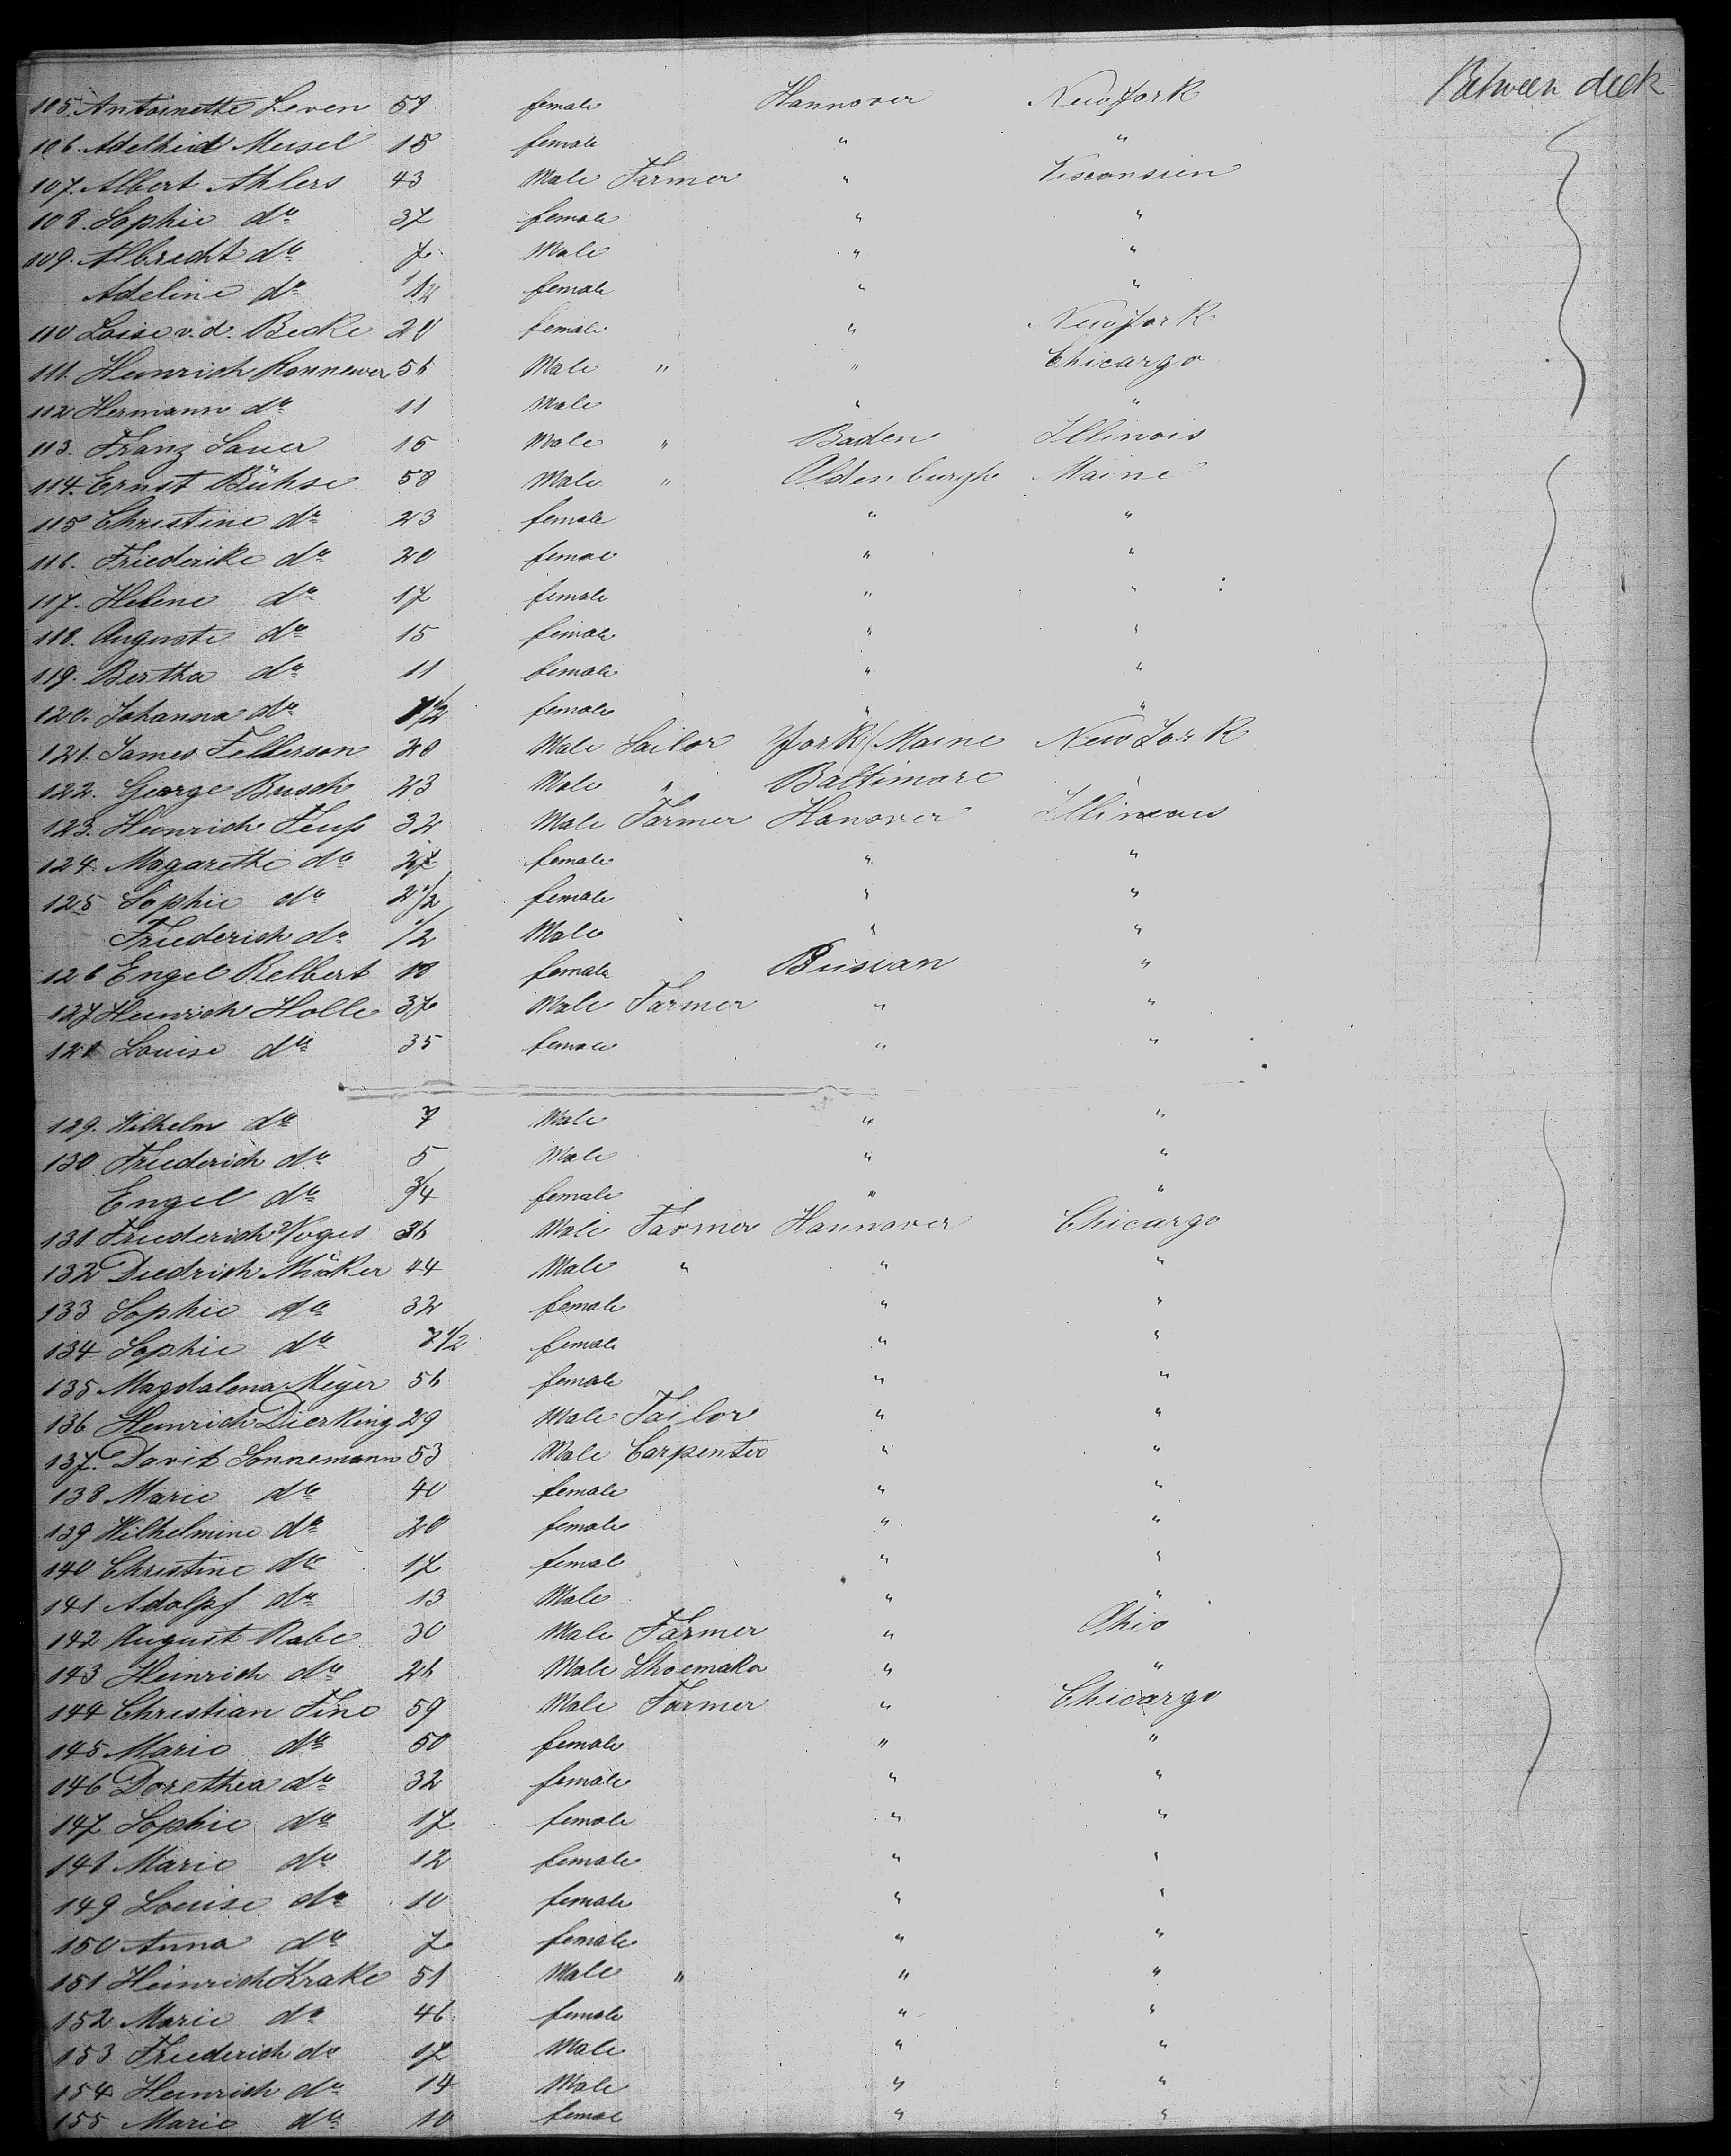 Between deck
105. Antoinette Leven 58 female Hannover New York
106. Adelheid Meisel 15 female " "
107. Albert Ahlers 43 Male Farmer " Visconsien
108. Sophie do 37 female " "
109. Albrecht do 7 Male " "
Adeline do female " "
110 Loise v. d. Becke 20 female " New York
111. Heinrich Ronnewer 56 Male " " Chicargo
112 Hermann do 11 Male " "
113. Franz Sauer 16 Male " Baden Illinois
114. Ernst Bühse 58 Male " Oldenburgh Maine
115 Christine do 23 female " "
116. Friederike do 20 femae " "
117. Helene do 17 female " "
118. Auguste do 15 female " "
119. Bertha do 11 female " "
120. Johanna do female " "
121. James Fellerson 20 Male Sailor York / Maine New York
122. George Busch 23 Male " Baltimore "
123. Heinrich Feuß 32 Male Farmer Hanover Illineous
124. Magarethe do 27 female " "
125 Sophie do 2 1/2 female " "
Friederich do 1/2 Male " "
126 Engel Relbert 18 female Busian "
127 Heinrich Holle 37 Male Farmer " "
128 Louise do 35 female " "
129. Wilhelm do 7 Male " "
130 Friederich do 5 Male " "
Engel do 3/4 female " "
131 Friederich Voges 36 Male Farmer Hannover Chicargo
132 Diedrich 44 Male " " "
133 Sophie do 32 female " "
134 Sophie do 7 1/2 female " "
135 Magdalena Meijer 56 female " "
136 Heinrich Dierking 29 Male Tailor " "
137. Davit Sonnemann 53 Male Carpenter " "
138 Marie do 40 female " "
139 Wilhelmine do 20 female " "
140 Christine do 17 femal " "
141 Adolpf do 13 Male " "
142 August Rabe 30 Male Farmer " Ohio
143 Heinrich do 26 Male Shoemaker " "
144 Christian Fine 59 Male Farmer " Chicargo
145 Marie do 50 female " "
146 Dorethea do 32 female " "
147 Sophie do 17 female " "
148 Marie do 12 female " "
149 Louise do 10 female " "
150 Anna do 7 female " "
151 Heinrich Krake 51 Male " " "
152 Marie do 46 female " "
153 Friederich do 17 Male " "
154 Heinrich do 14 Male " "
155 Marie do 10 femae " "